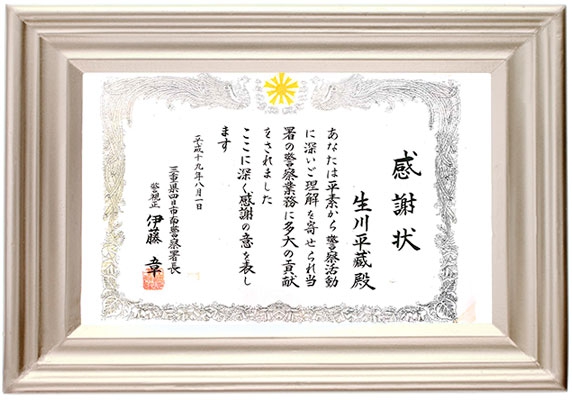 感謝状
生川平蔵殿
あなたは平素から警察活動
に深いご理解を寄せられ当
署の警察業務に多大の貢献
をされました
ここに深く感謝の意を表し
ます
平成十九年八月一日
三重県四日市南警察署長
警視正 伊藤 章